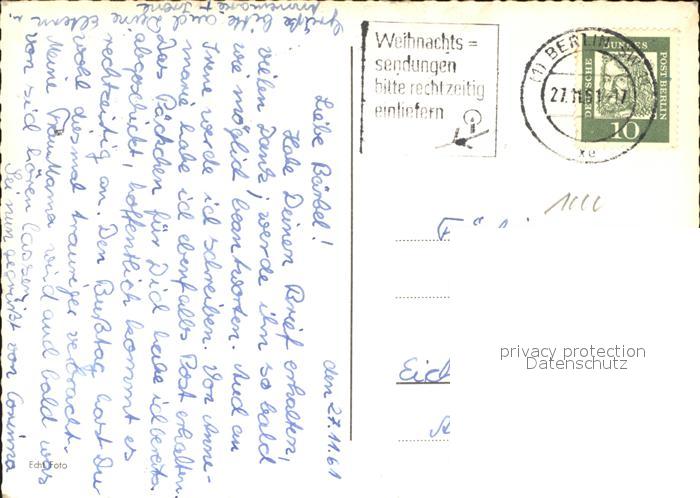 den 27.11.61
Liebe Bärbel!
Habe Deinen Brief erhalten,
vielen Dank, werde ihn so bald
wie möglich beantworten. Auch an
Irene werde ich schreiben. Von Anne-
marie habe ich ebenfalls Post erhalten.
Das Päckchen für Dich habe ich bereits
abgeschickt, hoffentlich kommt es
rechtzeitig an. Den Bußtag hast Du
wohl diesmal trauriger verbracht.
Meine Mama wird auch bald was
von sich hören lassen.
Sei nun gegrüßt von Corinna
Grüße bitte auch Deine Eltern
Annemarie + Irene
Echt Foto
Weihnachts=
sendungen
bitte rechtzeitig
einliefern
(1) BERLIN SW
27.11.61-17
xe
DEUTSCHE BUNDESPOST BERLIN
10
Eic
privacy protection
Datenschutz